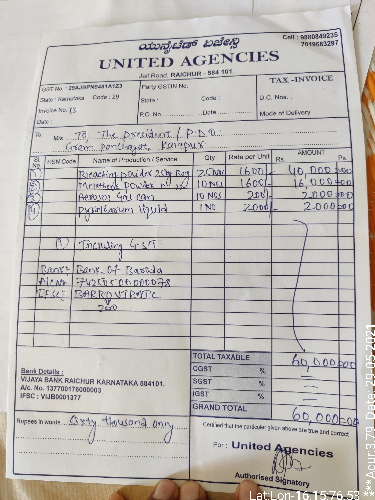 ಯುನೈಟೆಡ್ ಏಜೆನ್ಸಿ
Cell : 9880849235
7019683297
UNITED AGENCIES
Jail Road, RAICHUR - 584 101.
GST No. : 29AJRPN9481A1Z3
State : Karnataka Code : 29
Invoice No. 13
Date :
Party GSTIN No.
State : Code :
P.O. No. Date
TAX - INVOICE
D.C. Nos.
Mode of Delivery
To, M/s. The president / P.D.O
Gram panchayat,
Sl. No. HSN Code Name of Production / Service Qty Rate per Unit AMOUNT Rs. Ps.
1 Bleaching powder 25kg Bag 25 Nos 1600/- 40,000=00
2 powder 10 Nos 1600/- 16,000=00
3 Aerosol Gas can 10 Nos 200/- 2,000=00
4 liquid 1 No 2000/- 2,000=00
Including G.S.T
Bank: Bank of Baroda
A/c no:
IFSC:
TOTAL TAXABLE 60,000=00
CGST %
SGST %
IGST %
GRAND TOTAL 60,000=00
Bank Details :
VIJAYA BANK RAICHUR KARNATAKA 584101.
A/c. No. 137700176000003
IFSC : VIJB0001377
Rupees in words Sixty thousand only
Certified that the particular given above are true and correct
For : United Agencies
Authorised Signatory
Lat:Lon-16.15:76.53
***Acur:3.79 Date. 29-05-2021